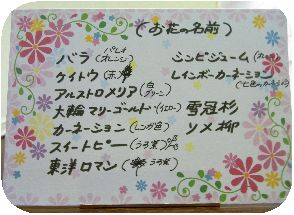 (お花の名前)
バラ(パレオ オレンジ)
ケイトウ(赤)
アルストロメリア(白 グリーン)
大輪マリーゴールド(イエロー)
カーネーション(レンガ色)
スイートピー(うす紫)
東洋ロマン(うす紫)
シンビジューム
レインボーカーネーション
(七色のカーネーション)
雪冠杉
ソメ柳